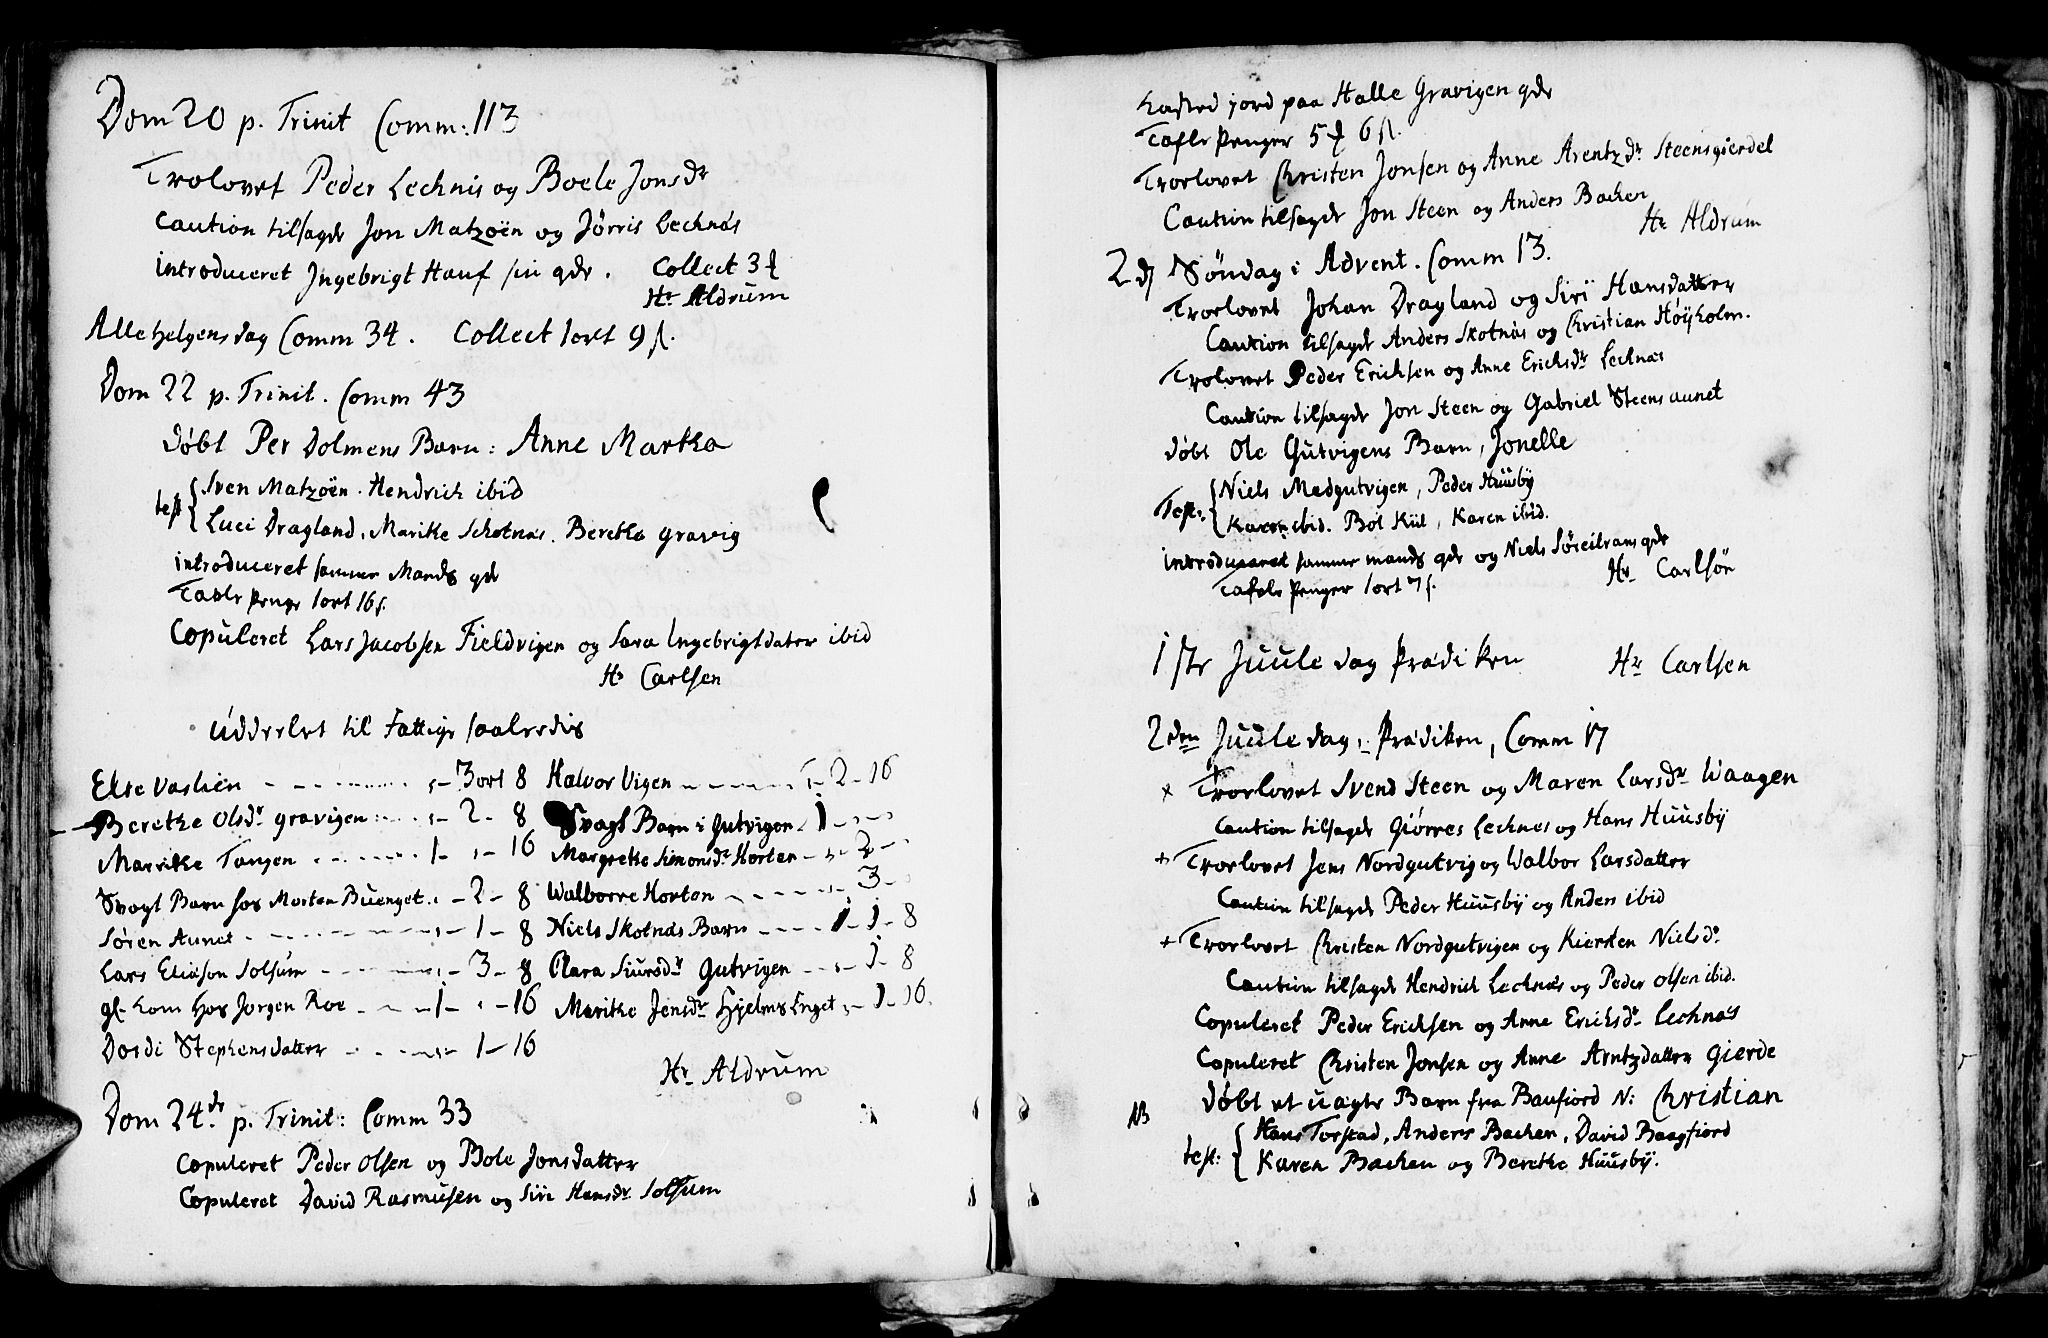 Dom 20 p. Trinit Comm: 113
Trolovet Peder Lecknis og Boele Jonsdr
Caution tilsagde Jon Matzøen og Jørris Lecknás
introduceret Ingebrigt Hauf sin qde. Collect 3
Hr Aldrum
Alle helgens dag Comm 34. Collect 1 ort 9 s.
Dom 22 p. Trinit. Comm 43
døbt Per Dolmens Barn: Anne Martha
test { Sven Matzøen. Hendrich ibid
Luci Dragland, Marike Schotnas. Beretha gravig
introduceret samme Mands qde
Tavle penge 1 ort 16 s.
Copuleret Lars Jacobsen Fieldvigen og Sara Ingebrigtdater ibid
Hr Carlsen
Uddeelet til Fattige saaledis
Else Vaslien - 3 ort 8
Berethe Olsdr gravigen - 2 - 8
Marrike Tangen 1 - - 16
Svagt Barn hos Morten Buenget - 2 - 8
Søren Aunet - 1 - 8
Lars Eliason Solsum - 3 - 8
gl. kom hos Jørgen Roe - 1 - - 16
Dordi Stephensdatter - 1 - 16
Halvor Vigen - 2 - 16
Svagt Barn i Gutvigen - 1 - -
Margrethe Simonsdr Horten - 2 -
Walborre Horton - 3 -
Niels Skotnæs Barn 1 - 1 - 8
Clara Siursdr Gutvigen - 1 - 8
Marike Jensdr Hjelms Enget - 1 - 16.
Hr Aldrum
Dom 24de p. Trinit: Comm 33
Copuleret Peder Olsen og Bole Jonsdatter
Copuleret David Rasmusen og Siri Hansdr Solsum
kasted jord paa Halle Gravigen qde
Tafle Penger 5 6 s.
Troelovet Christen Jonsen og Anne Arentzdr Steensgierdel
Caution tilsagde Jon Steen og Anders Backen
Hr Aldrum
2d Søndag i Advent. Comm 13.
Troelovet Johan Dragland og Siri Hansdatter
Caution tilsagde Anders Skotnás og Christian Høyholm.
Trolovet Peder Erichsen og Anne Erichsdr Lecknæs
Caution tilsagde Jon Steen og Gabriel Steensaunet
døbt Ole Gutvigens Barn, Jonelle
Test: { Niels Madgutvigen, Peder Huusby
Karen ibid. Bol Kiil, Karen ibid.
introduceret samme mands qde og Niels qde
Tafele Penger 1 ort 7 s. Hr Carlsøn
1ste Juule dag Prædiken Hr Carlsen
2den Juule dag, Prædiken, Comm 17
x Troelovet Svend Steen og Maren Larsdr Waagen
Caution tilsagde Giørres Lecknes og Hans Huusby
+ Troelovet Jens Nordgutvig og Walbor Larsdatter
Caution tilsagde Peder Huusby og Anders ibid
+ Troelovet Christen Nordgutvigen og Kiersten Nielsdr
Caution tilsagde Hendrich Lecknæs og Peder Olsen ibid.
Copuleret Peder Erichsen og Anne Erichsdr Lecknás
Copuleret Christen Jonsen og Anne Arntzdatter Gierde
NB Døbt et uægte Barn fra Baufiord N: Christian
test: { Hans Torstad, Anders Backen, David Baagfiord
Karen Backen og Berethe Huusby.